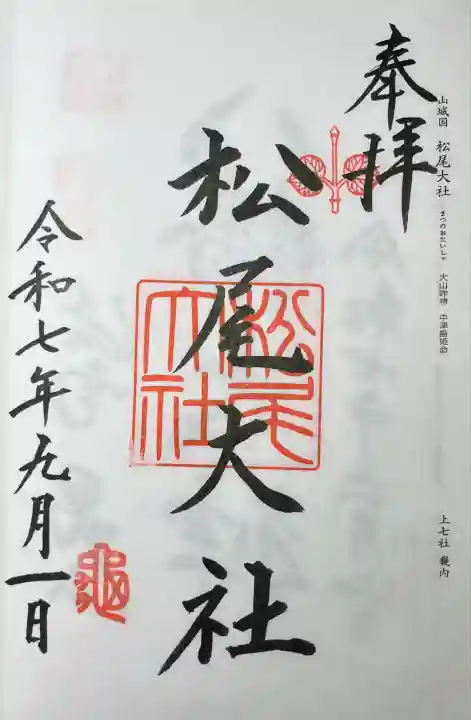 山城国 松尾大社 まつのおたいしゃ 大山咋神 中津島姫命
上七社 畿内
奉拝
松尾大社
松尾大社
令和七年九月一日
龜